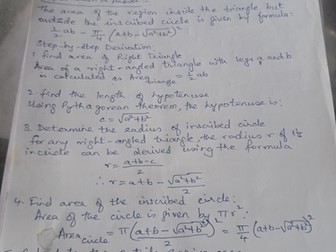 The area of the region inside the triangle but
outside the inscribed circle is given by formula:
½ab - π/4 (a+b-√a²+b²)²
Step-by-step Derivation:
1. Find area of Right Triangle
Area of a right-angled triangle with legs a and b
is calculated as Area triangle = ½ab
2. Find the length of hypotenuse
Using Pythagorean theorem, the hypotenuse is:
c = √a²+b²
3. Determine the radius of inscribed circle
for any right-angled triangle, the radius r of its
incircle can be derived using the formula
r = a+b-c/2
∴ r = a+b-√a²+b²/2
4. Find area of the inscribed circle:
Area of the circle is given by πr²:
Area circle = π(a+b-√a²+b²/2)² = π/4 (a+b-√a²+b²)²